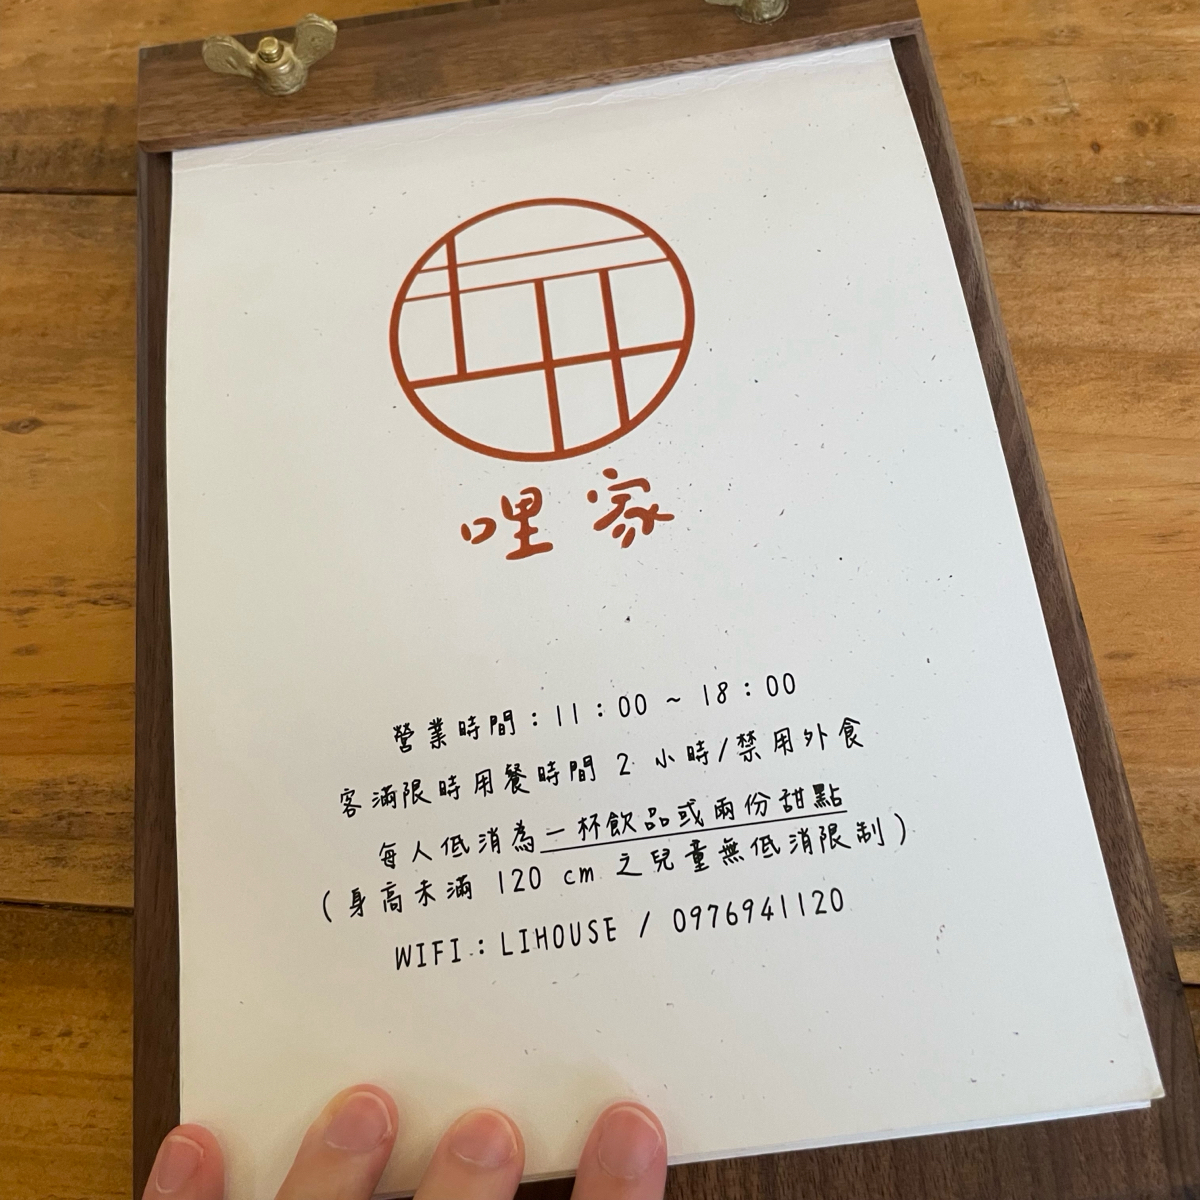 哩家
營業時間：11：00 ~ 18：00
客滿限時用餐時間 2 小時/禁用外食
每人低消為一杯飲品或兩份甜點
（身高未滿 120 cm 之兒童無低消限制）
WIFI：LIHOUSE / 0976941120